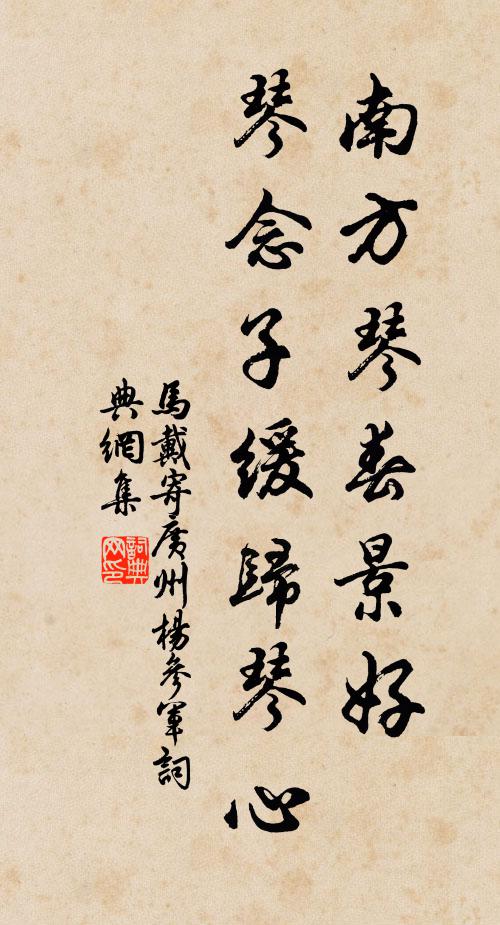 南方琴春景好
琴念子緩歸琴心
馬戴寄廣州楊參軍詞
典網集
詞典網印